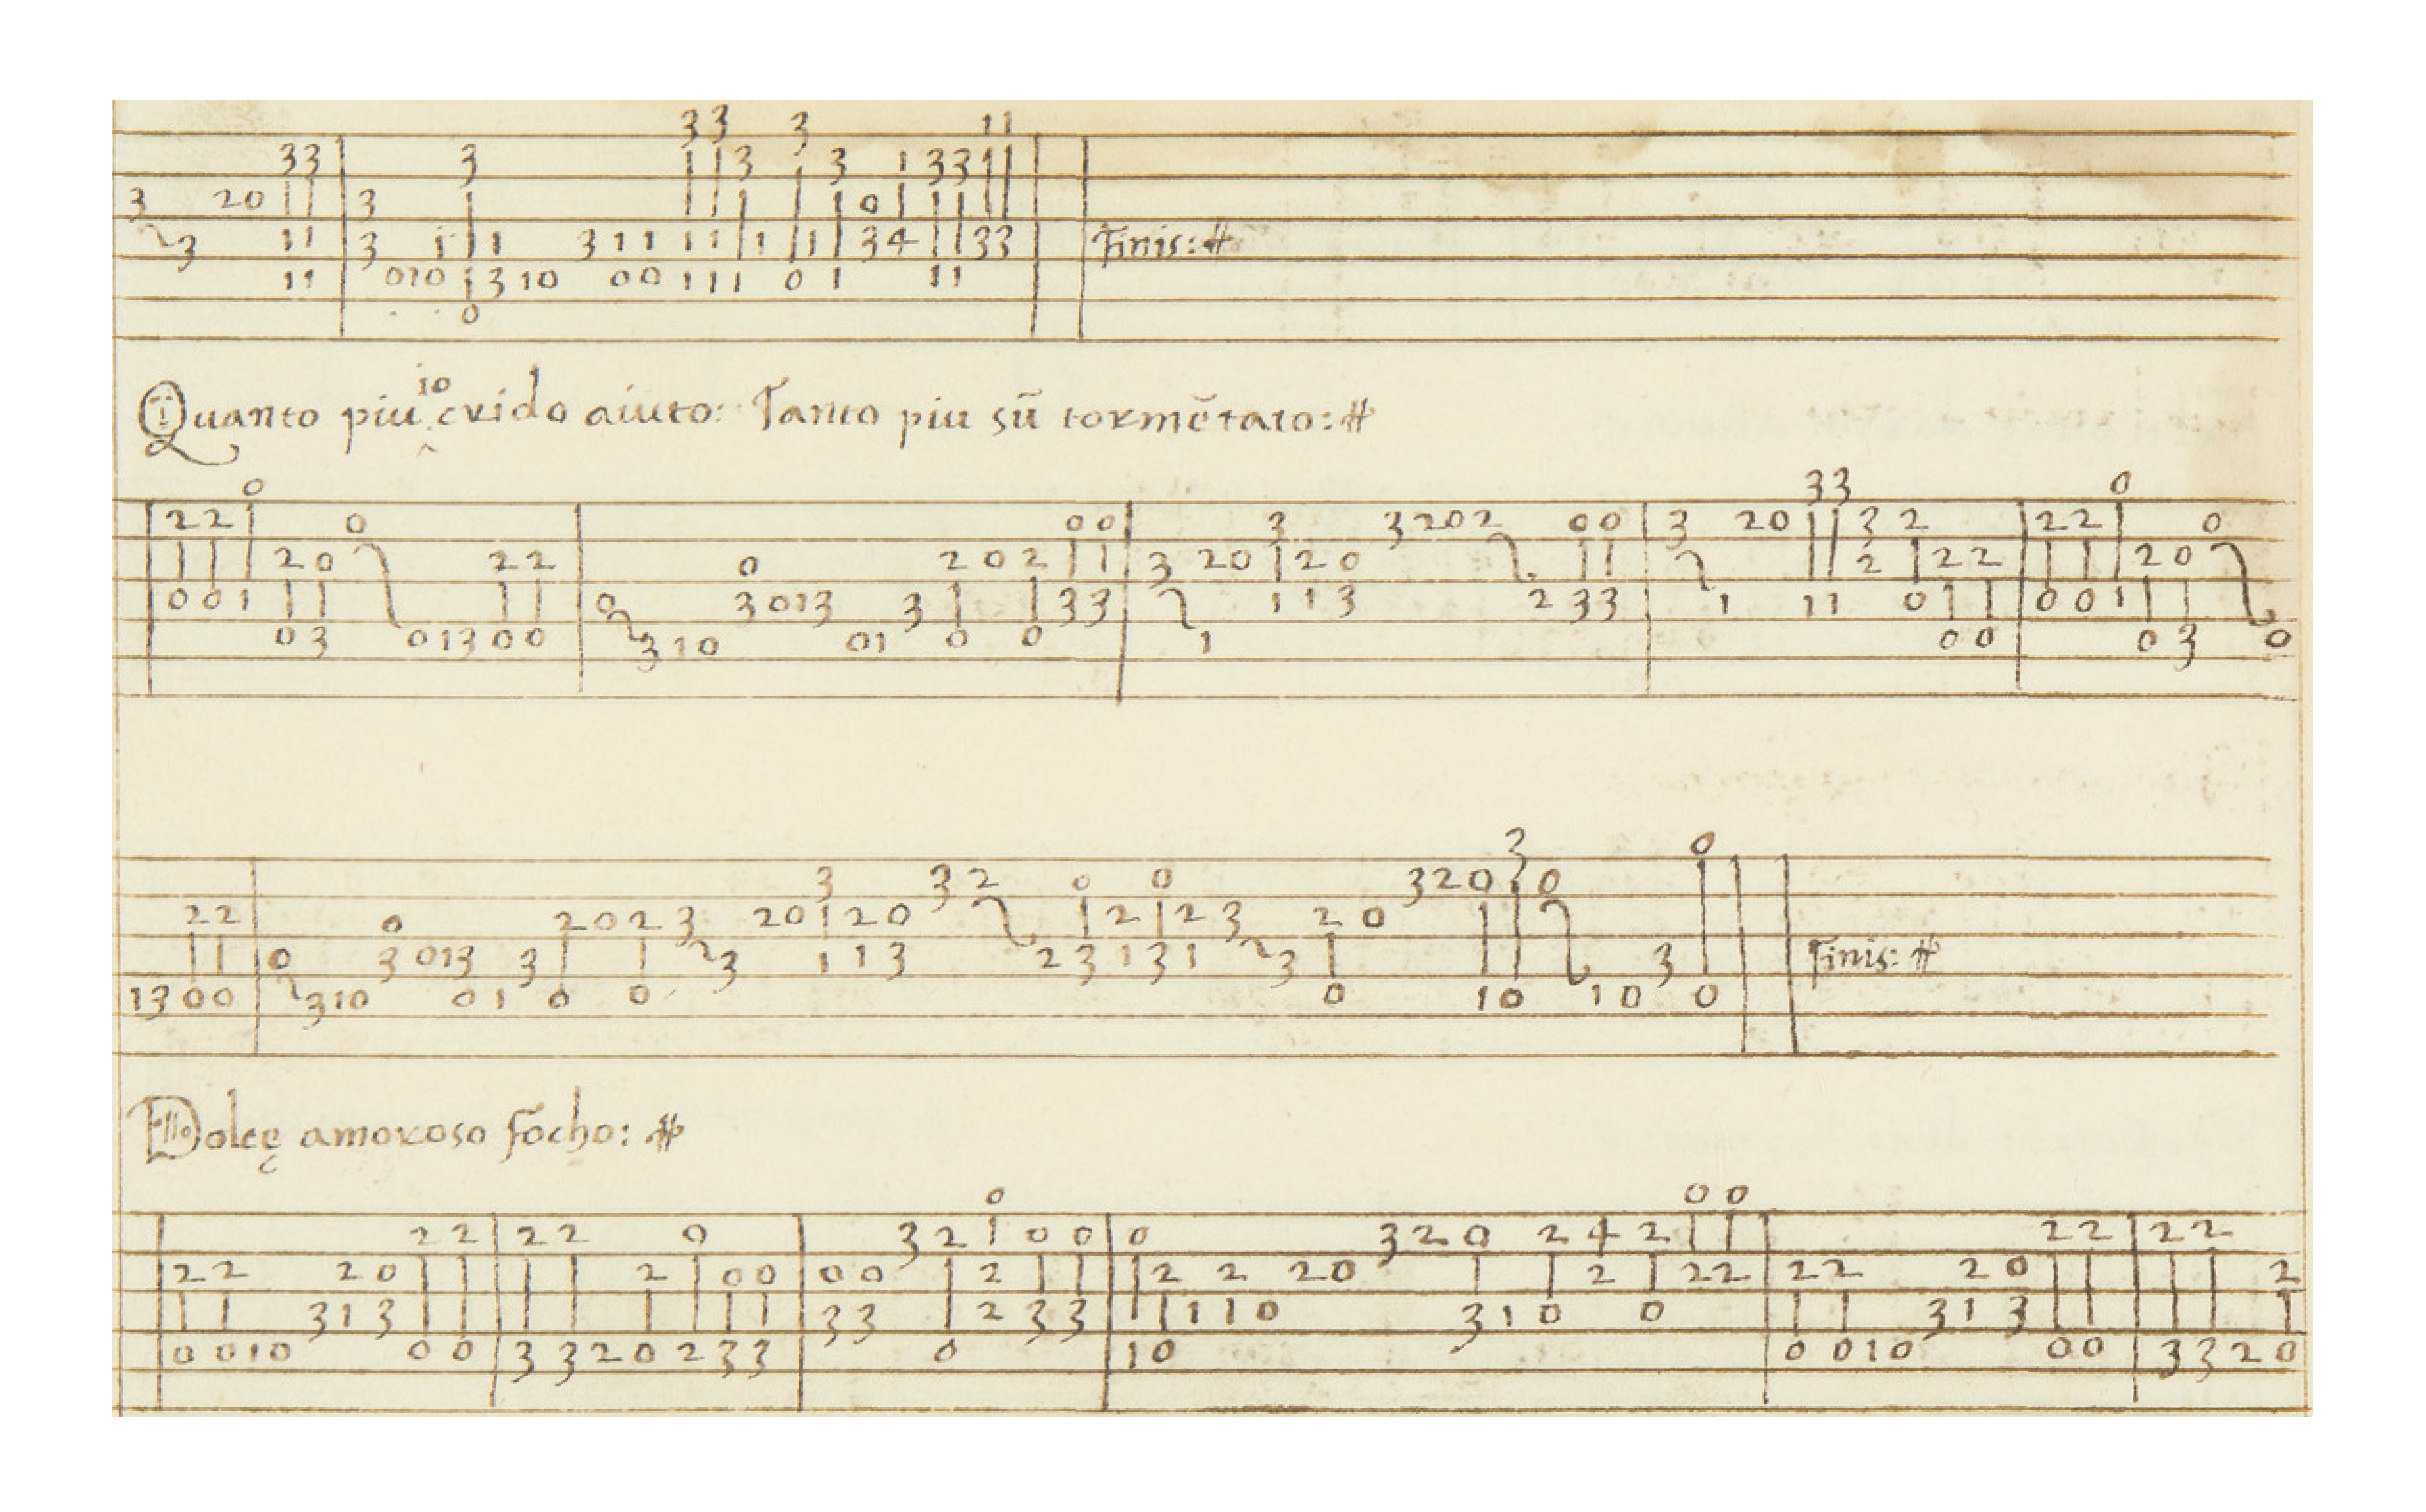 Finis:#
Quanto piu io crido aiuto: Tanto piu sū tormētato:#
Finis:#
Dolcę amoroso focho:#